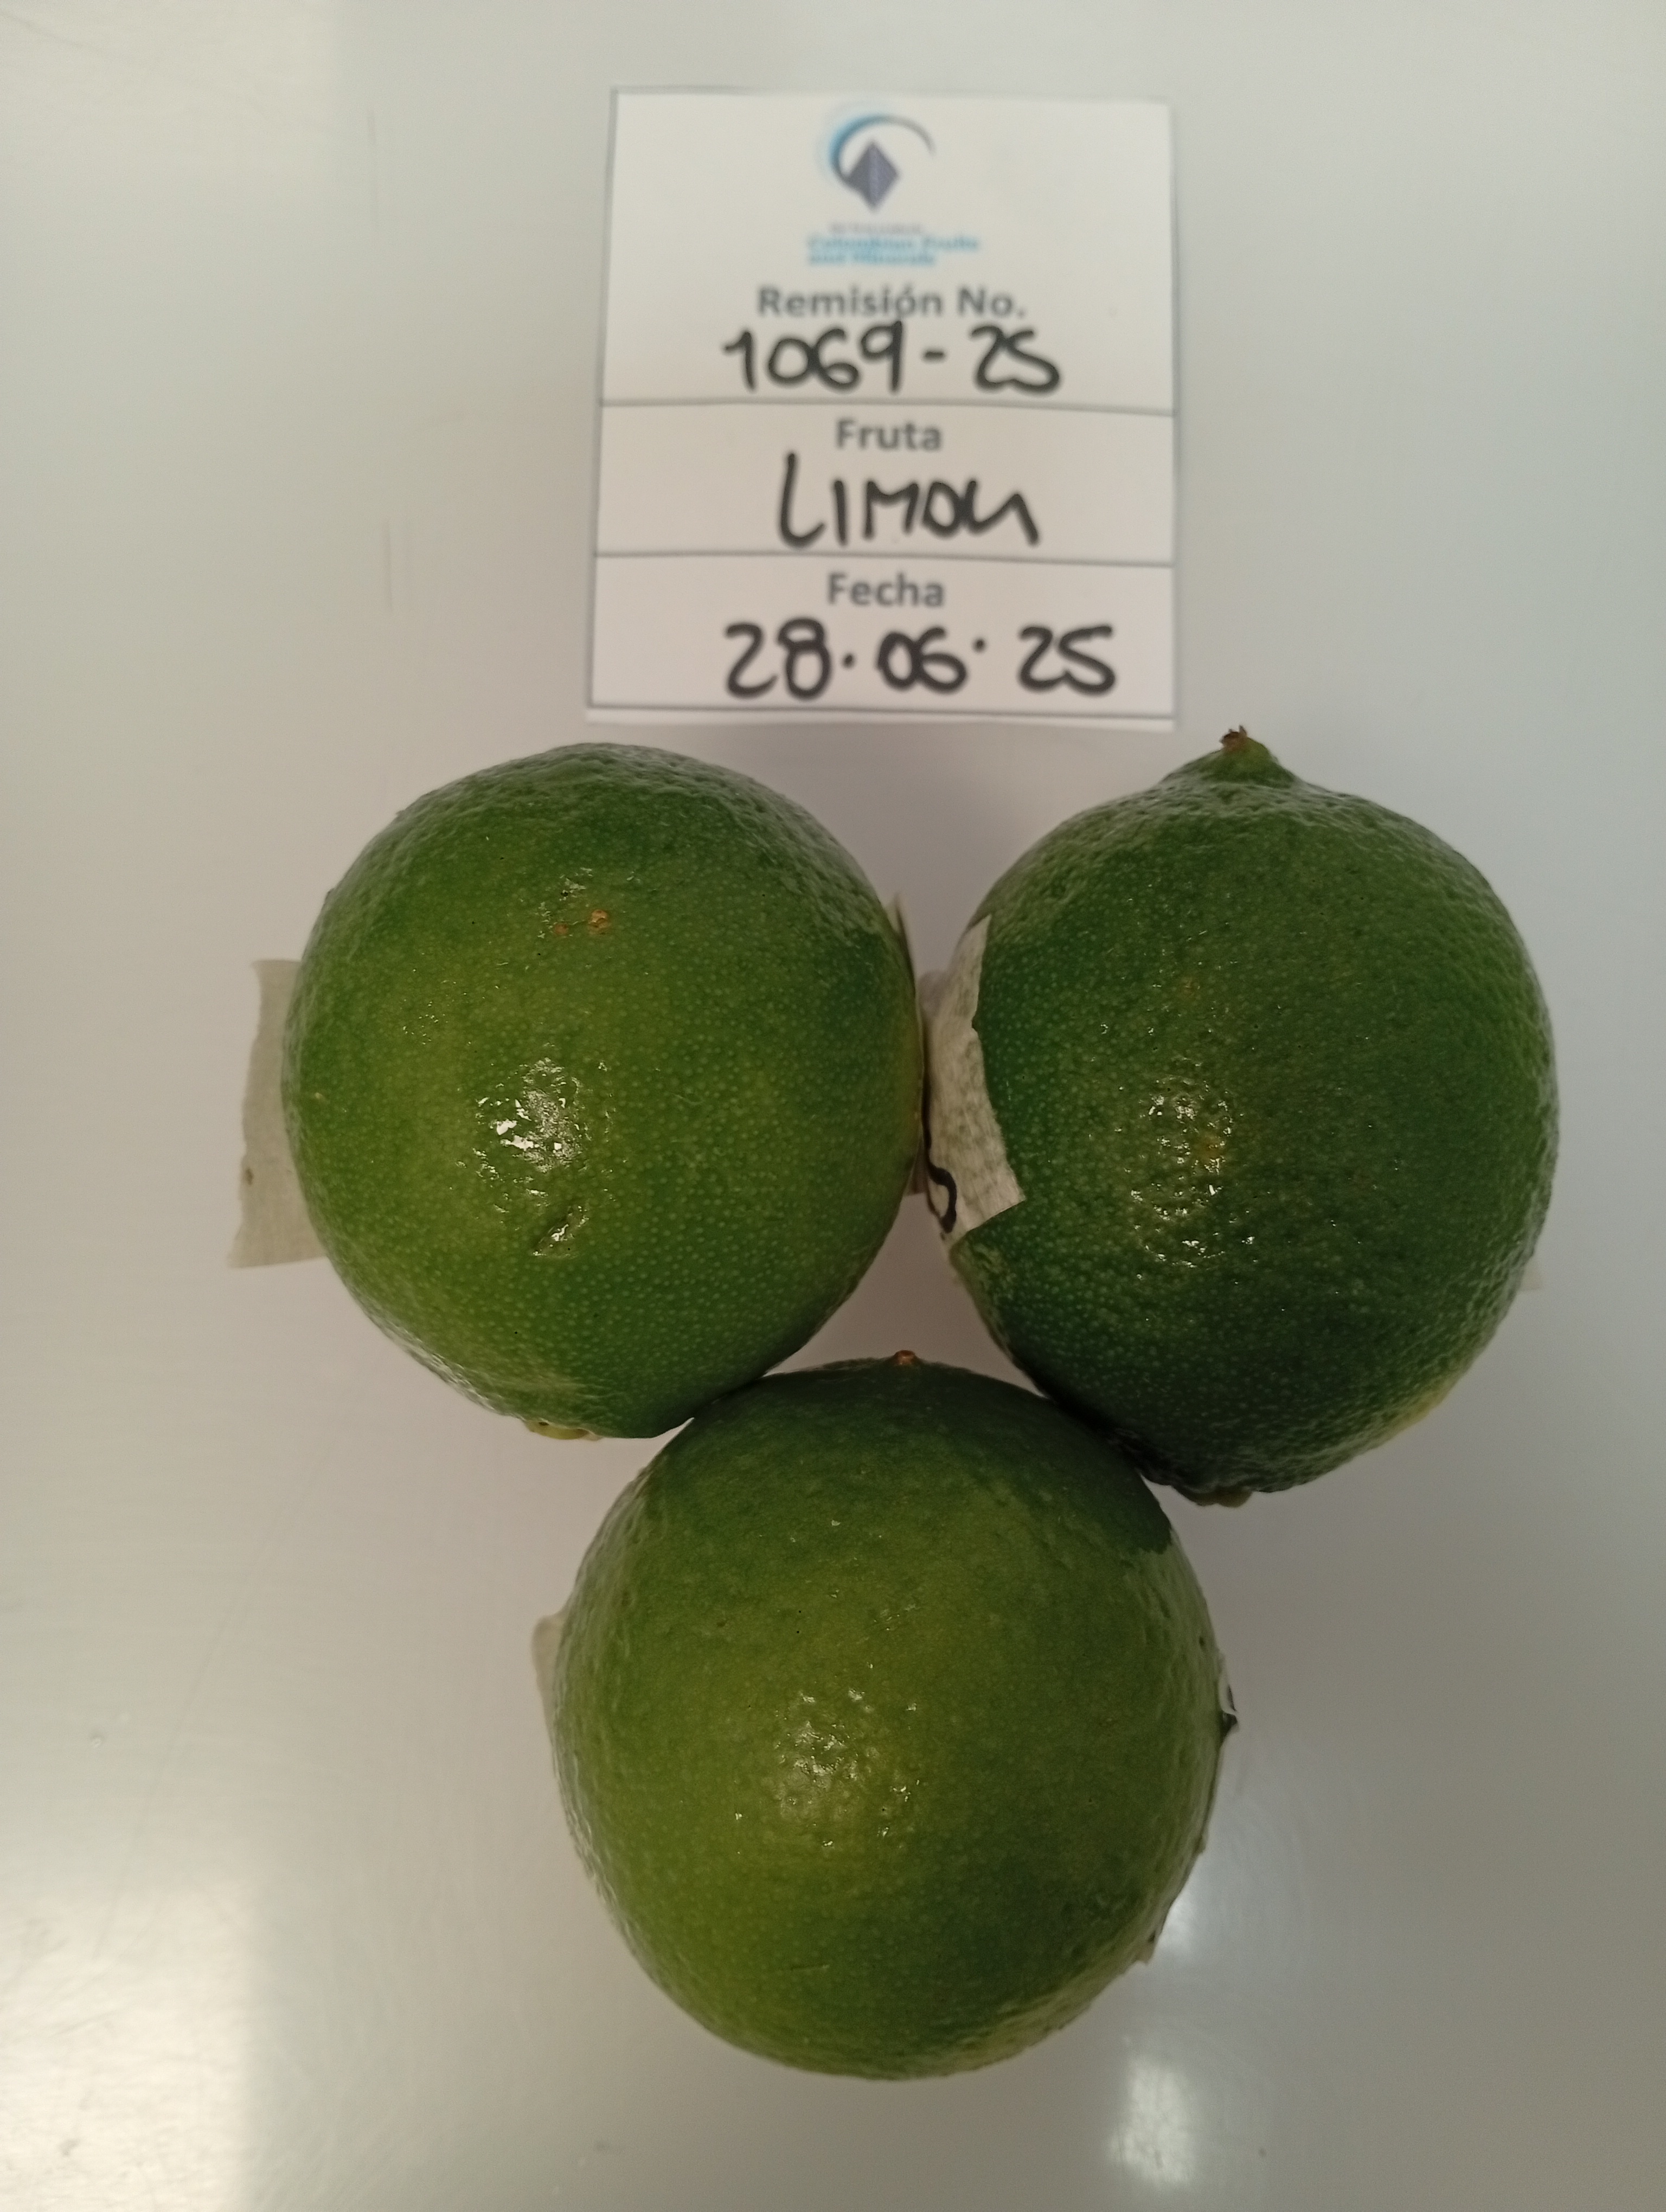 Colombian Fruits
and Minerals
Remisión No.
1069-25
Fruta
LIMON
Fecha
28.06.25